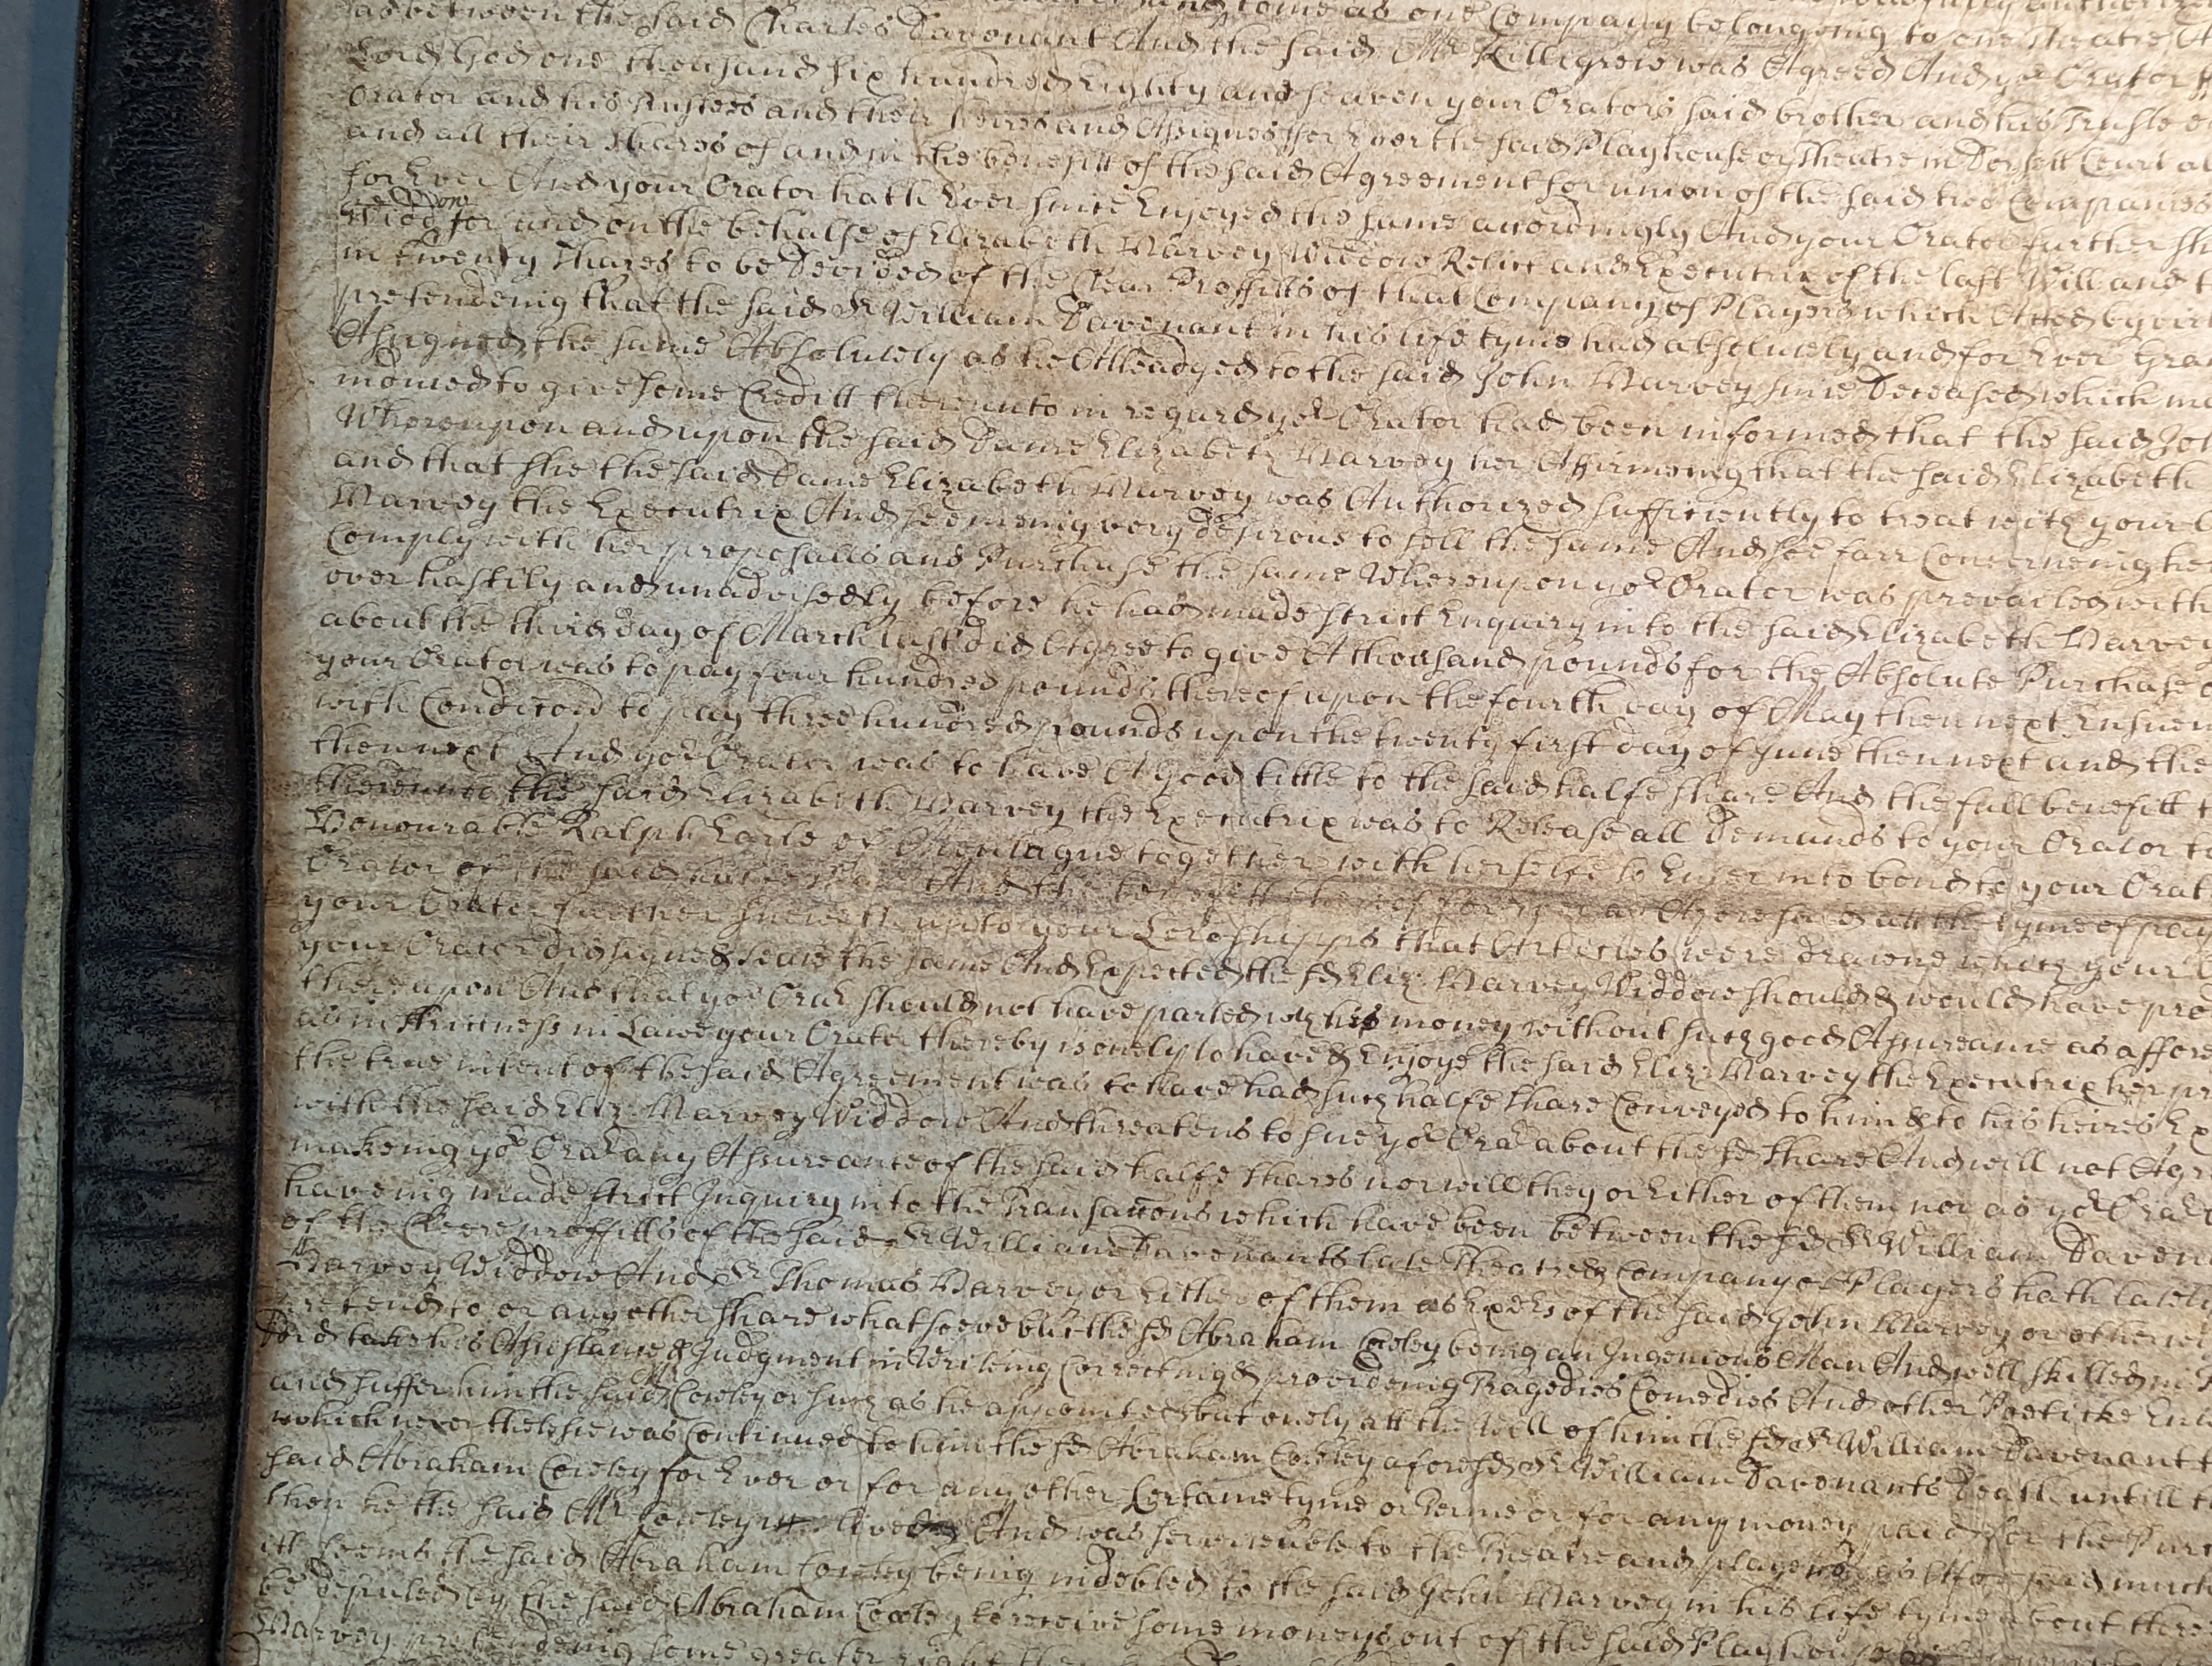 as between the said Charles Davenant And the said Mr Killegrew was Agreed And yor Orator
Lord God one thousand six hundred Eighty and seaven your Orators said brother and his Trustee
Orator and his Trustees and their heires and Assignes for Ever the said Playhouse or Theatre in Dorsett Court
and all their shares of and in the benefitt of the said Agreement for union of the said two Companies
for Ever And your Orator hath Ever since Enjoyed the same accordingly And your Orator further
for and on the behalfe of Elizabeth Harvey Widdow Relict and Executrix of the last Will and
in twenty shares to be devided of the Clear Proffitts of that Company of Players which Acted by
pretendeing that the said Sr William Davenant in his life tyme had absolutely and for Ever
Assigned the same Absolutely as he Alleadged to the said John Harvey since deceased which
moved to give some Creditt thereunto in regard yor Orator had been informed that the said
Whereupon and upon the said Dame Elizabeth Harvey her Affirmeing that the said Elizabeth
and that she the said Dame Elizabeth Harvey was Authorized sufficiently to treat with your
Harvey the Executrix And seemeing very desirous to sell the same And soe farr Concerneing
Comply with her proposalls and Purchase the same Whereupon yor Orator was prevailed with
over hastily and unadvisedly before he had made strict Enquiry into the said Elizabeth Harvey
about the third day of March last did Agree to give A thousand pounds for the Absolute Purchase
your Orator was to pay four hundred pounds thereof upon the fourth day of May then next
with Condicon to pay three hundred pounds upon the twenty first day of June then next and the
then next And yor Orator was to have A good tittle to the said halfe share And the full benefitt
thereunto the said Elizabeth Harvey the Executrix was to Release all demands to your Orator
Honourable Ralph Earle of Mountague together with herselfe to Enter into bond to your
Orator of the said halfe share And the benefitt thereof for Ever as Aforesaid att the tyme of
your Orator further sheweth unto your Lordshipps that Articles were drawne which your
your Orator did signe & seale the same And Expected the sd Eliz: Harvey Widdow should & would have
thereupon And that yor Orar should not have parted wth his money without such good Assureance as
as in strictness in Lawe your Orator thereby is onely to have & Enjoye the said Eliz: Harvey the Executrix her
the true intent of the said Agreement was to have had such halfe share Conveyed to him & to his heires
with the said Eliz: Harvey Widdow And threatens to sue yor Orar about the sd share And will not
makeing yor Orar any Assureance of the said halfe shares nor will they or Either of them nor as yor Orar
haveing made strict Inquiry into the Transaccons which have been between the sd Sr William
of the Cleere proffitts of the said Sr William Davenants late Theatre & Company of Players hath
Harvey Widdow And Sr Thomas Harvey or Either of them as Exrs of the said John Harvey or
pretend to or any other share whatsoever but the sd Abraham Cowley being an Ingenious Man And well skilled in
did take his Assistance & Judgment in Writeing Correcting & provideing Tragedies Comedies And other Poeticke
and suffer him the said Mr Cowley or such as he appointed but onely att the Will of him the sd Sr William Davenant
which nevertheless was Continued to him the sd Abraham Cowley aforesd Sr William Davenants death untill
said Abraham Cowley for Ever or for any other Certaine tyme or Terme or for any money paid for the
then he the said Mr Cowley lived And was serviceable to the Theatre and
itt seems the said Abraham Cowley being indebted to the said John Harvey in his life tyme about
be deputed by the said Abraham Cowley to receive some moneys out of the said Playhouse
Harvey pretendeing some greater right